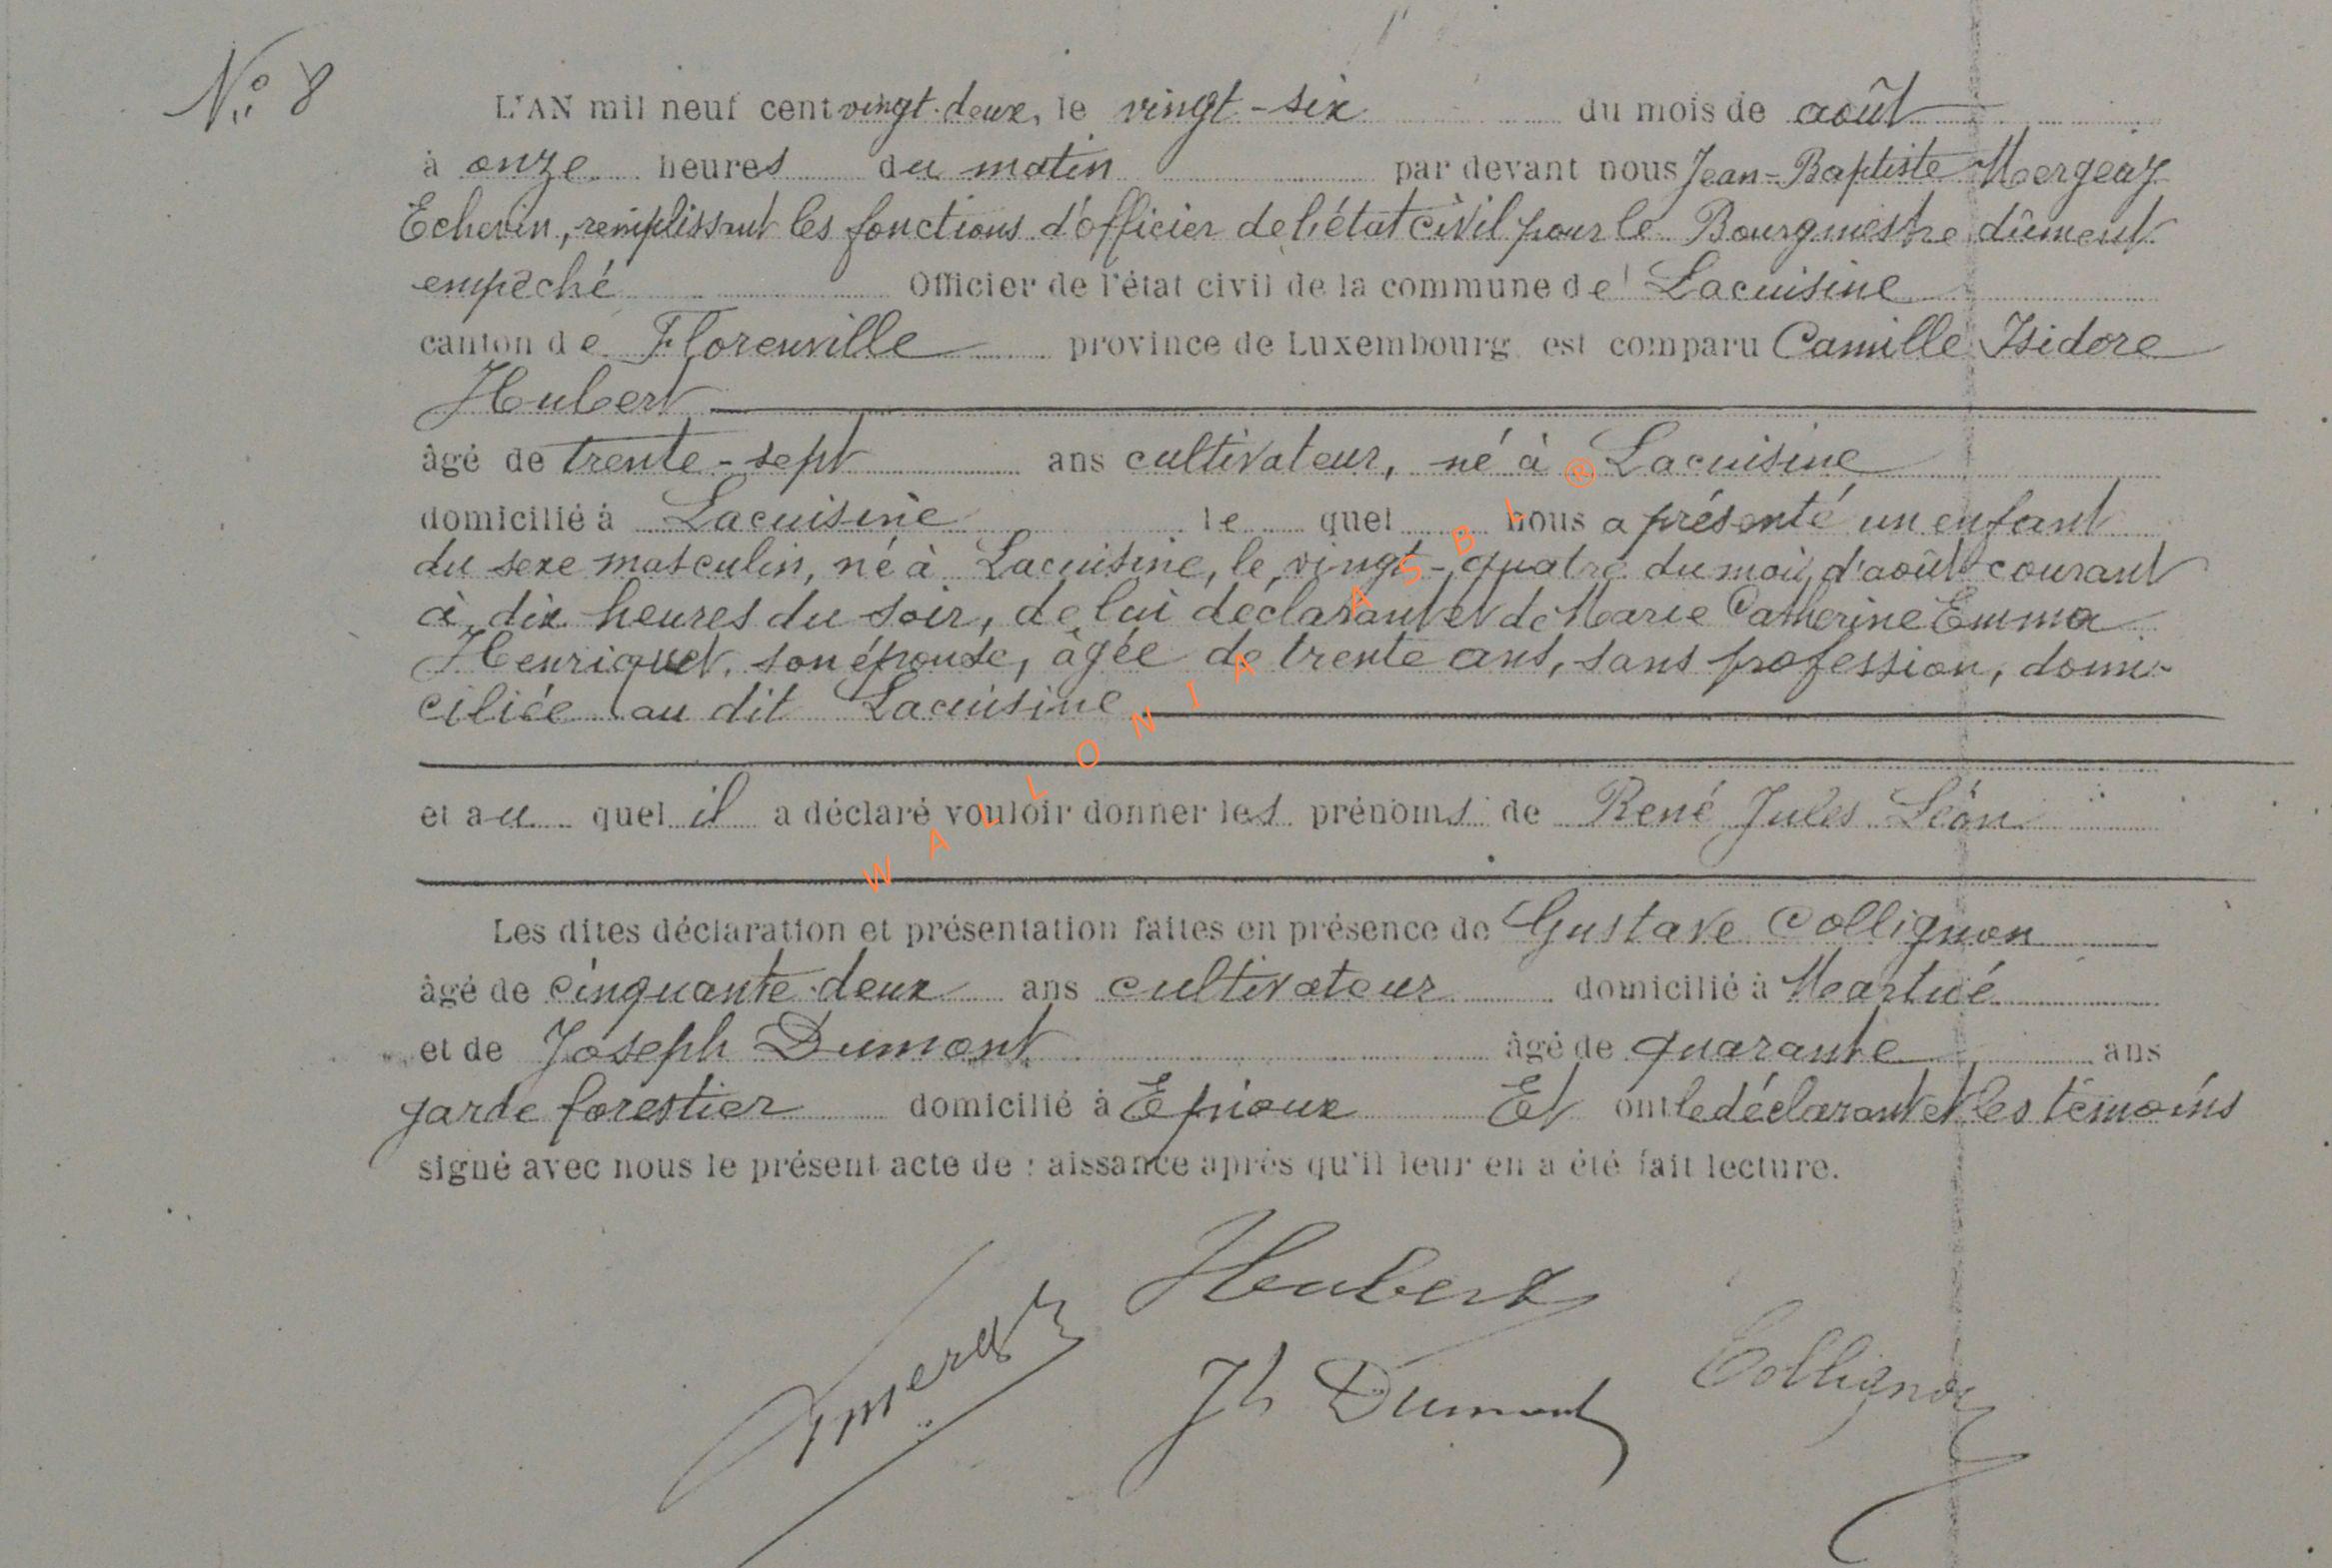 N° 8
L'AN mil neuf cent vingt-deux, le vingt-six du mois de août
à onze heures du matin par devant nous Jean-Baptiste Mergeay
Echevin, remplissant les fonctions d'officier de l'état civil pour le Bourgmestre dûment
empêché Officier de l'état civil de la commune de Lacuisine
canton de Florenville province de Luxembourg est comparu Camille Isidore
Hubert
âgé de trente-sept ans cultivateur, né à Lacuisine
domicilié à Lacuisine lequel nous a présenté un enfant
du sexe masculin, né à Lacuisine, le vingt-quatre du mois d'août courant
à dix heures du soir, de lui déclarant et de Marie Catherine Emma
Henriquet, son épouse, âgée de trente ans, sans profession, domi-
ciliée au dit Lacuisine
et au quel il a déclaré vouloir donner les prénoms de René Jules Léon
Les dites déclaration et présentation faites en présence de Gustave Collignon
âgé de cinquante-deux ans cultivateur domicilié à Martué
et de Joseph Dumont âgé de quarante ans
garde forestier domicilié à Epioux Et ont le déclarant et les témoins
signé avec nous le présent acte de naissance après qu'il leur en a été fait lecture.
Hubert
Jh Dumont Collignon
WALLONIA ASBL ®